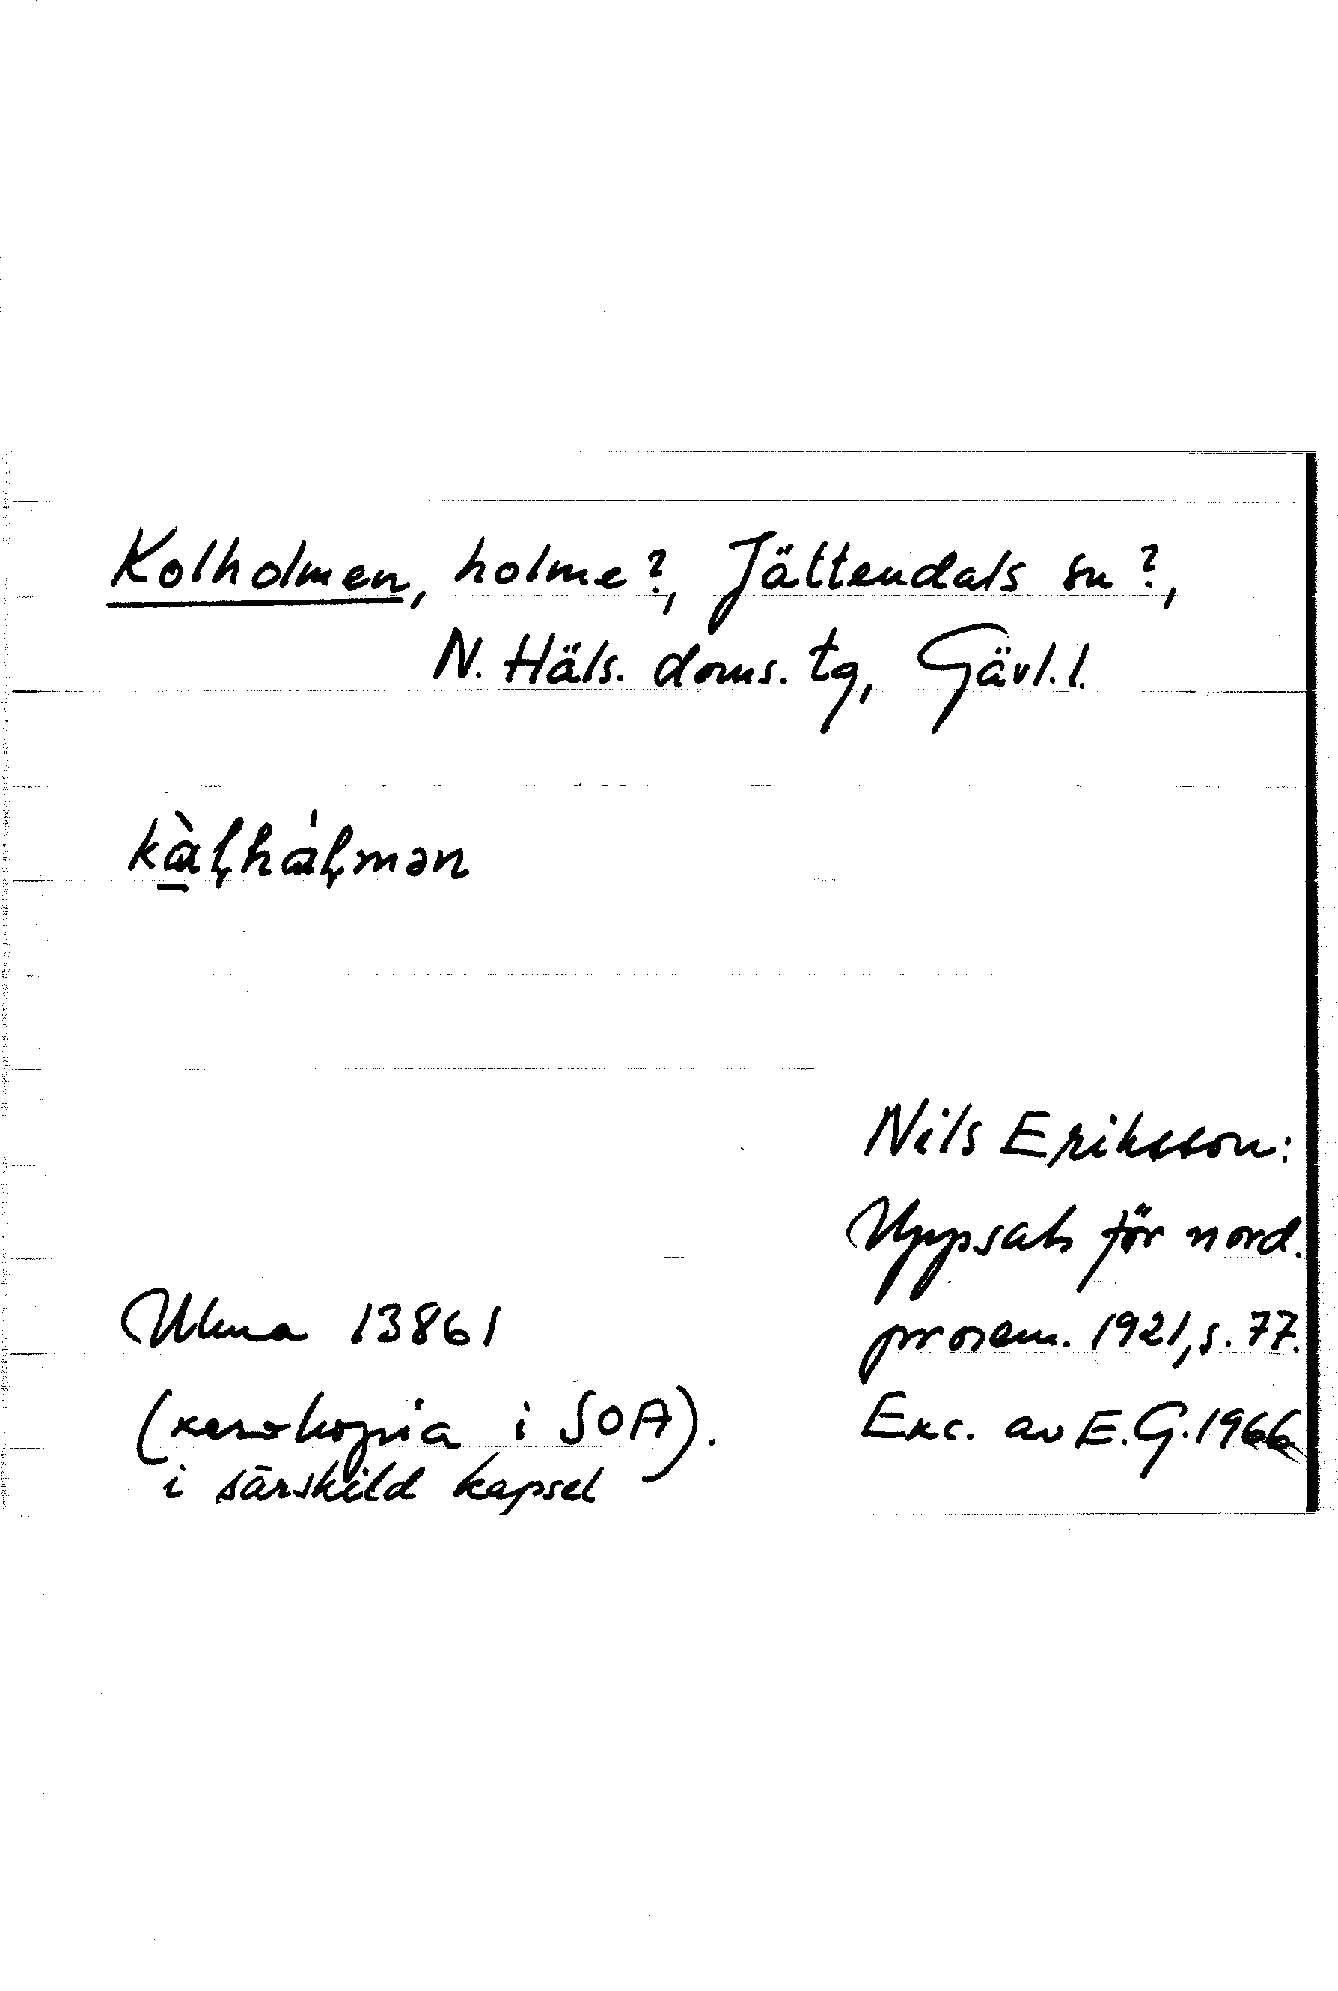 Kolholmen, holme?, Jättendals sn?,
N. Häls. doms. tg, Gävl. l.
kàl̥hál̥mən
Nils Eriksson:
Uppsats för nord.
prosem. 1921, s. 77.
Ulma 13861
(xerokopia i SOA).
i särskild kapsel
Exc. av E. G. 1966